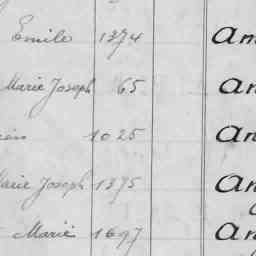 Emile 1374 An
Marie Joseph 65 An
1025 An
Marie Joseph 1375 An
Marie 1697 An